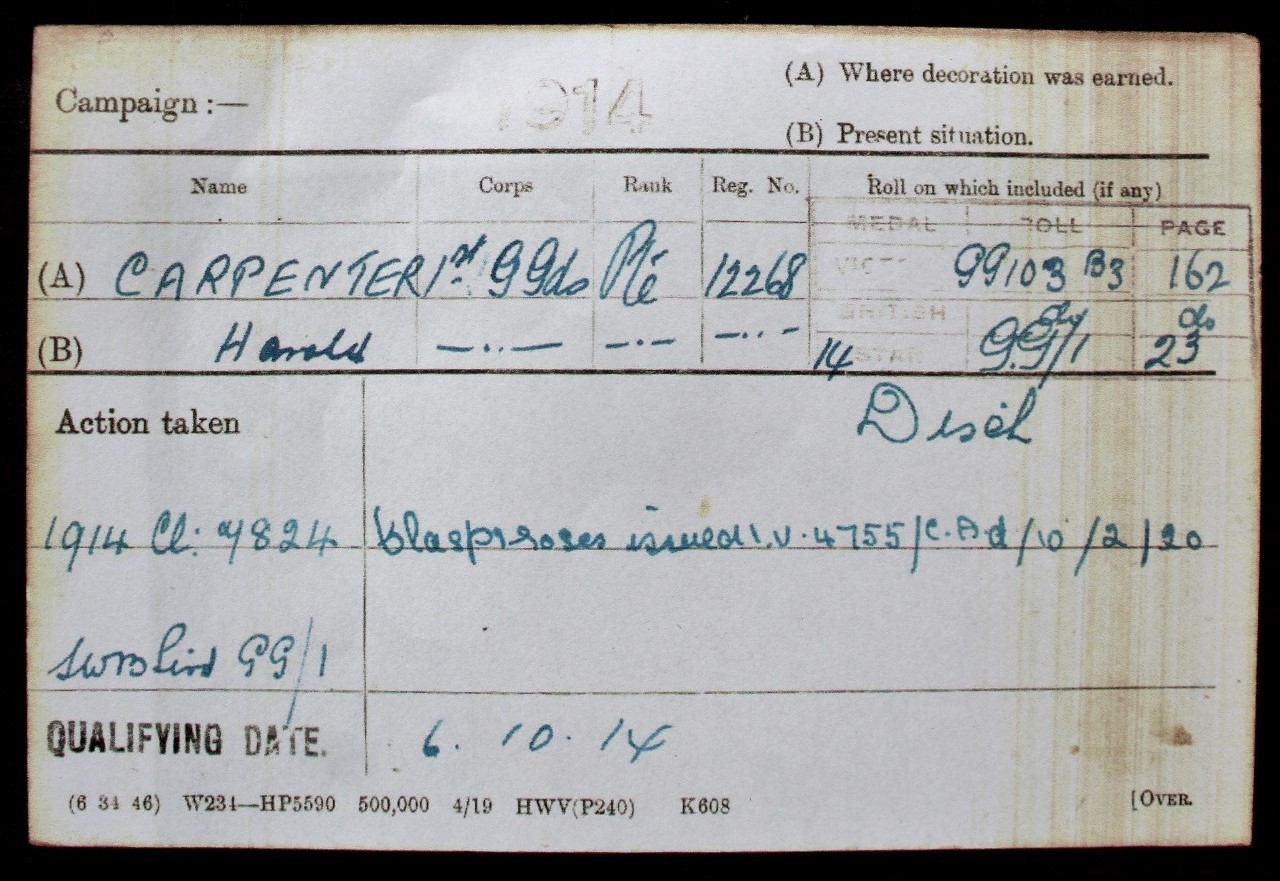 Campaign :— 1914 (A) Where decoration was earned.
(B) Present situation.
Name Corps Rank Reg. No. Roll on which included (if any)
MEDAL ROLL PAGE
(A) CARPENTER 1st G Gds Pte 12268 VICTORY GG103 B3 162
BRITISH do do
(B) Harold —..— —.— —..— 14 STAR GG/1 23
Action taken Disch
1914 Cl: 4824 Clasp & roses issued I.V. 4755/C. Ad/10/2/20
SWB List GG/1
QUALIFYING DATE. 6. 10. 14
(6 34 46) W234—HP5590 500,000 4/19 HWV(P240) K608 [OVER.